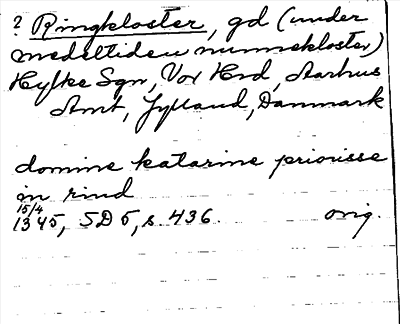 ? Ringkloster, gd (under
medeltiden nunnekloster)
Hylke Sgn, Vor Hrd, Aarhus
Amt, Jylland, Danmark
domine katarine priorisse
in rind
15/4
1345, SD 5, s. 436. orig.